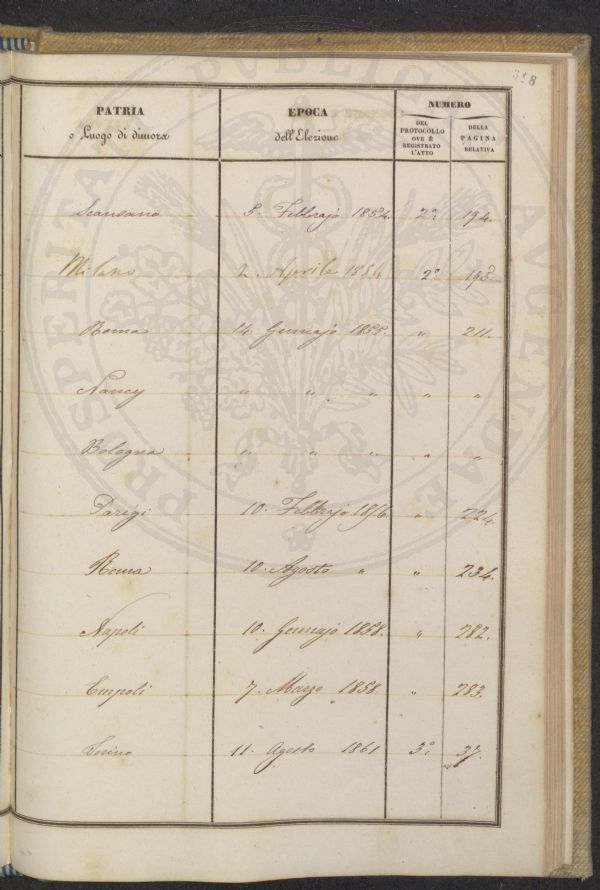 318
PATRIA
o Luogo di dimora
EPOCA
dell'Elezione
NUMERO
DEL
PROTOCOLLO
OVE È
REGISTRATO
L'ATTO
DELLA
PAGINA
RELATIVA
Scansano 5. Febbrajo 1854. 2° 194.
Milano 2. Aprile 1854 2° 198
Roma 14. Gennajo 1855. " 211.
Nancy " " " " "
Bologna " " " " "
Parigi 10. Febbrajo 1856 " 224.
Roma 10. Agosto " " 234.
Napoli 10. Gennajo 1858. " 282.
Empoli 7. Marzo 1858 " 283.
11. Agosto 1861 3° 37.
PROSPERITATI PUBLICAE AUGENDAE